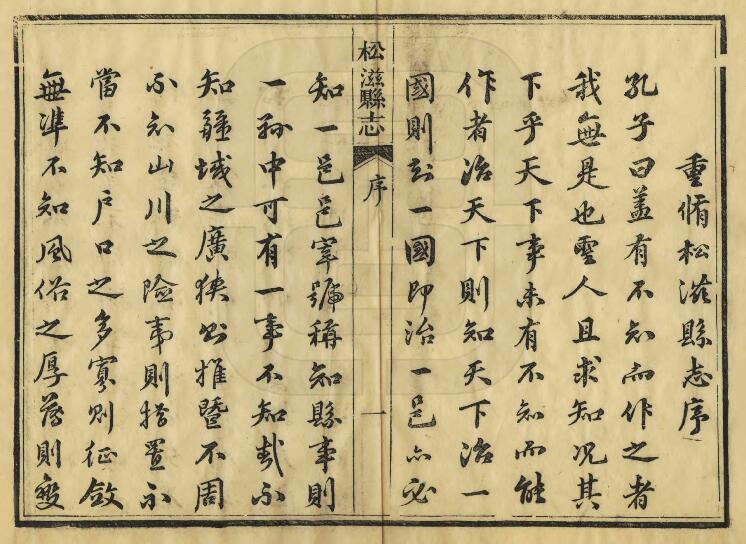 重脩松滋縣志序
孔子曰葢有不知而作之者
我無是也聖人且求知况其
下乎天下事未有不知而能
作者治天下則知天下治一
國則知一國即治一邑亦必
松滋縣志
序
一
知一邑邑宰號稱知縣事則
一縣中可有一事不知哉不
知疆域之廣狹則推暨不周
不知山川之險夷則措置不
當不知戶口之多寡則征斂
無準不知風俗之厚薄則變